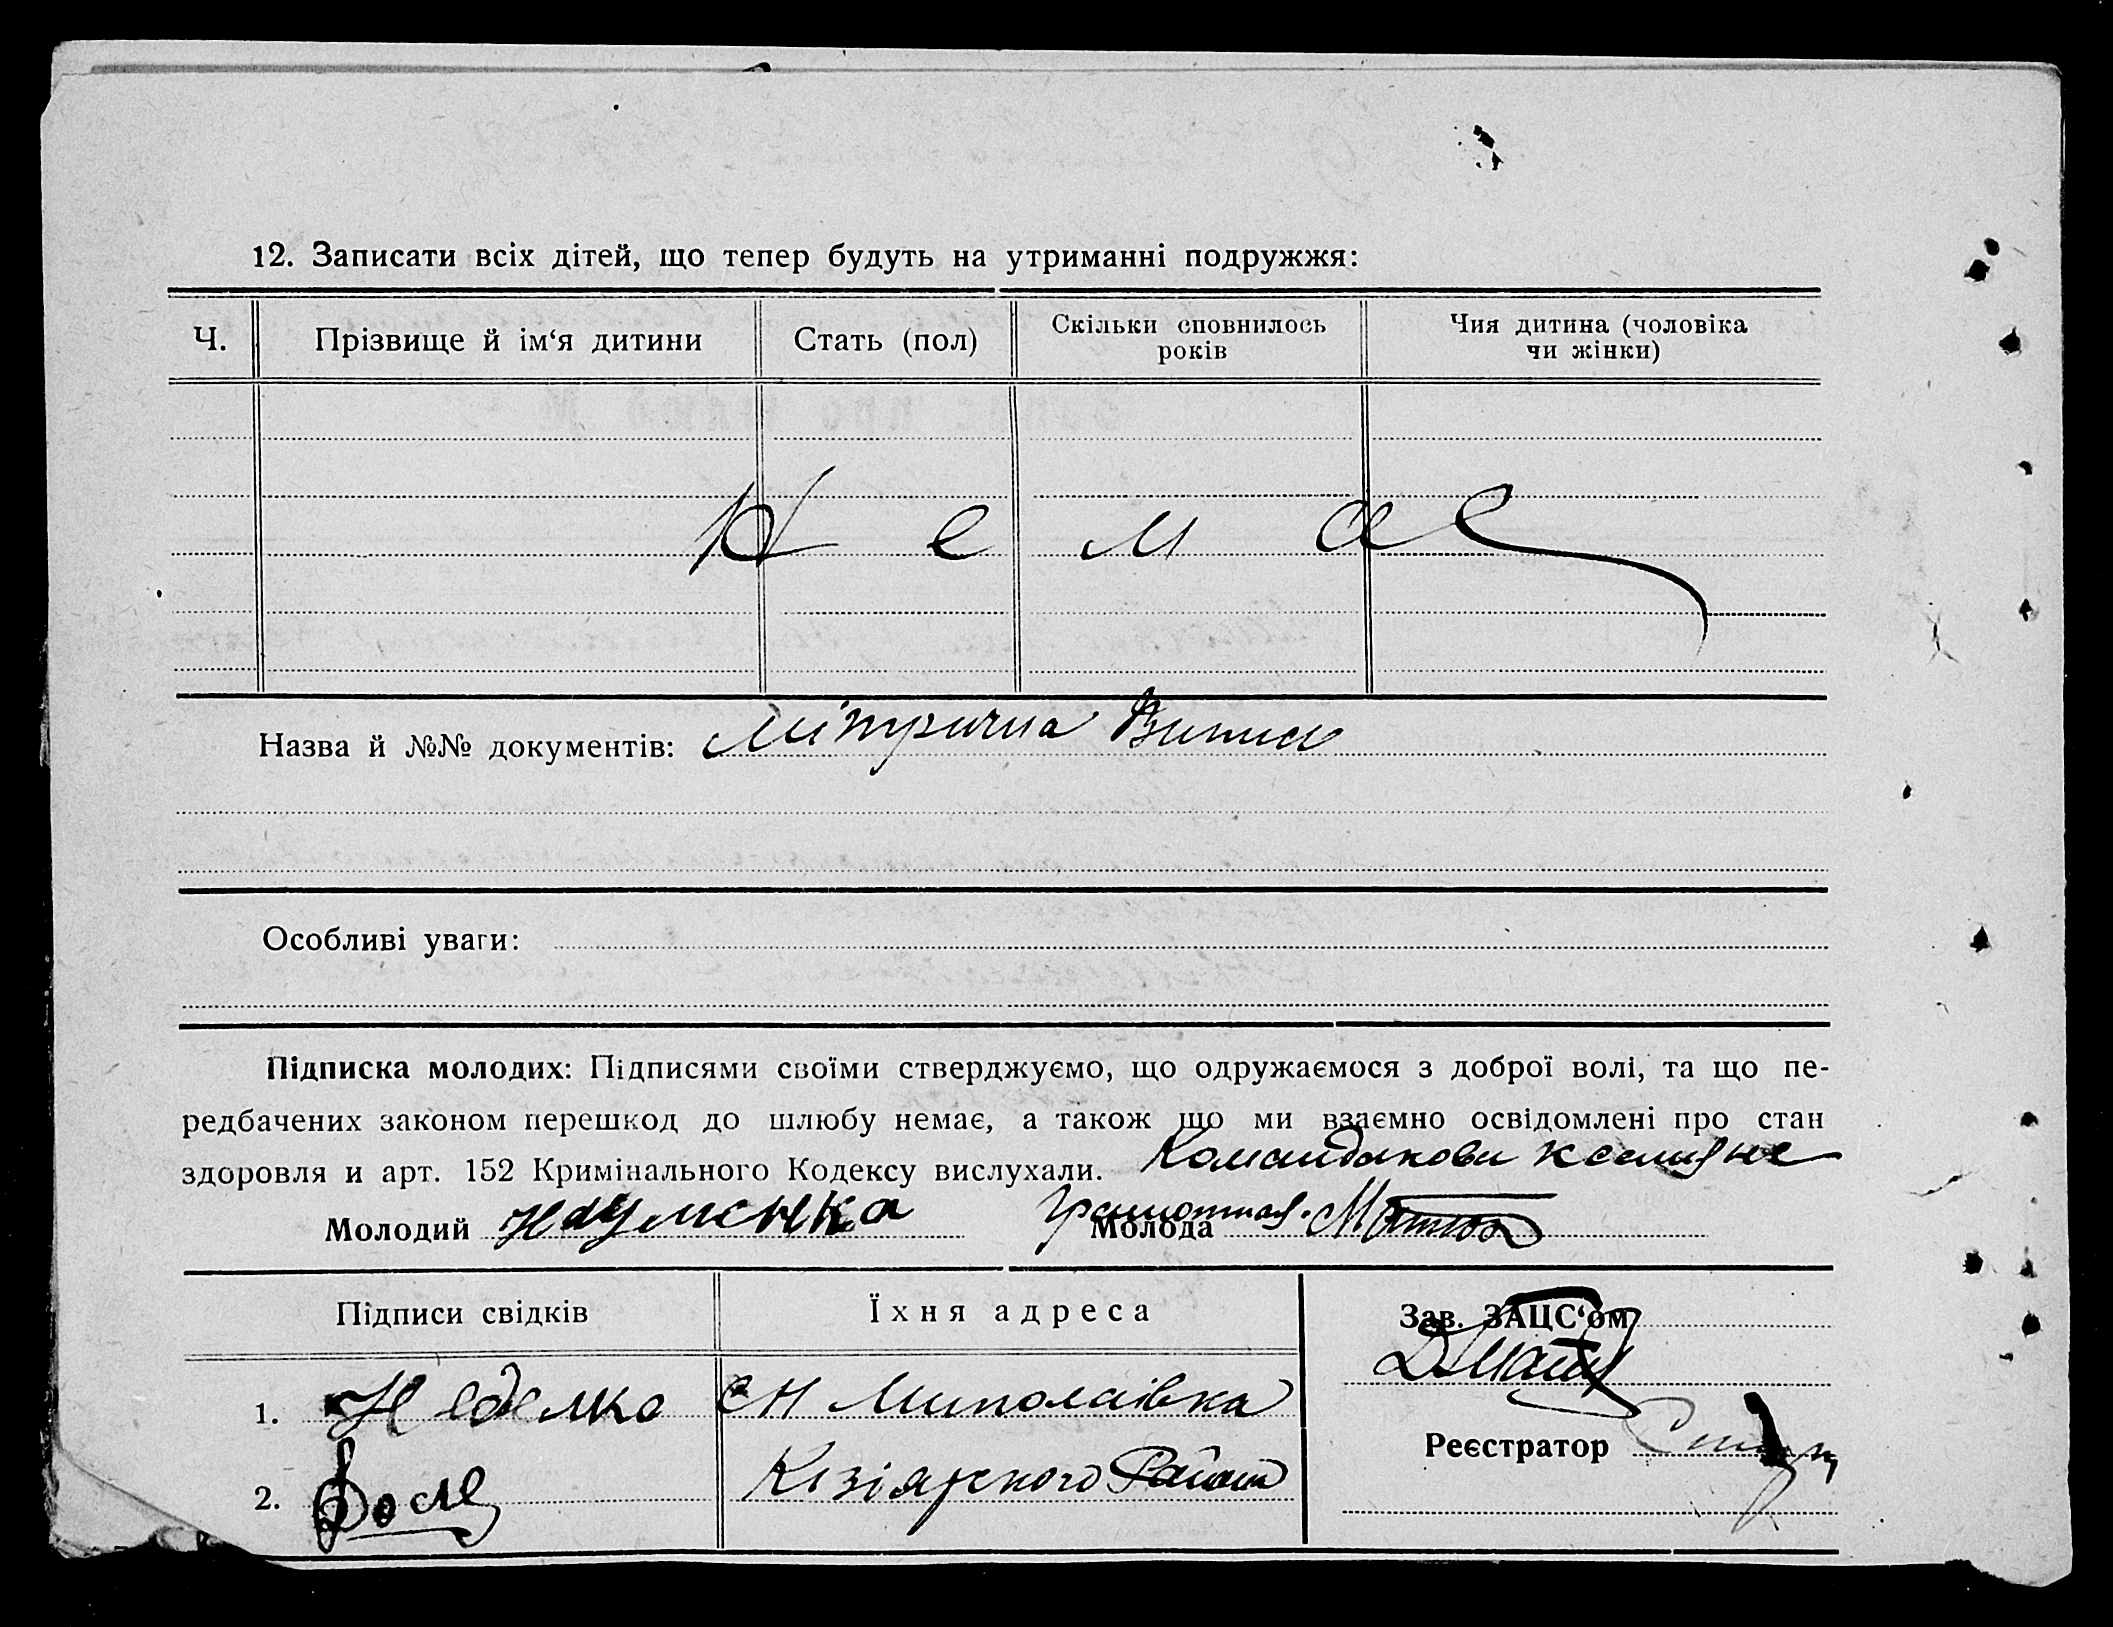 12. Записати всіх дітей, що тепер будуть на утриманні подружжя:
Ч. Прізвище й ім‘я дитини Стать (пол) Скільки сповнилось років Чия дитина (чоловіка чи жінки)
Немає
Назва й №№ документів: Мітрична Випись
Особливі уваги:
Підписка молодих: Підписями своїми стверджуємо, що одружаємося з доброї волі, та що пе-
редбачених законом перешкод до шлюбу немає, а також що ми взаємно освідомлені про стан
здоровля и арт. 152 Кримінального Кодексу вислухали.
Молодий Науменка Молода
Підписи свідків Їхня адреса Зав. ЗАЦС‘ом
1.
Реєстратор
2. Района